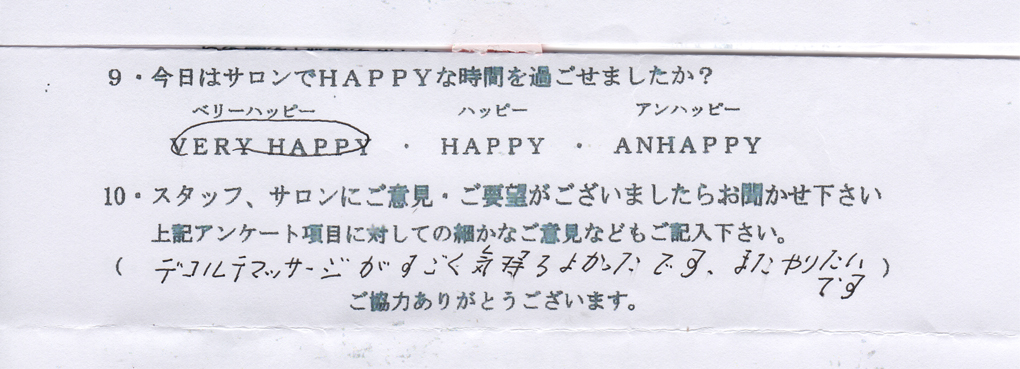 9・今日はサロンでHAPPYな時間を過ごせましたか？
ベリーハッピー ハッピー アンハッピー
VERY HAPPY ・ HAPPY ・ ANHAPPY
10・スタッフ、サロンにご意見・ご要望がございましたらお聞かせ下さい
上記アンケート項目に対しての細かなご意見などもご記入下さい。
（ デコルテマッサージがすごく気持ちよかったです、またやりたい
です ）
ご協力ありがとうございます。